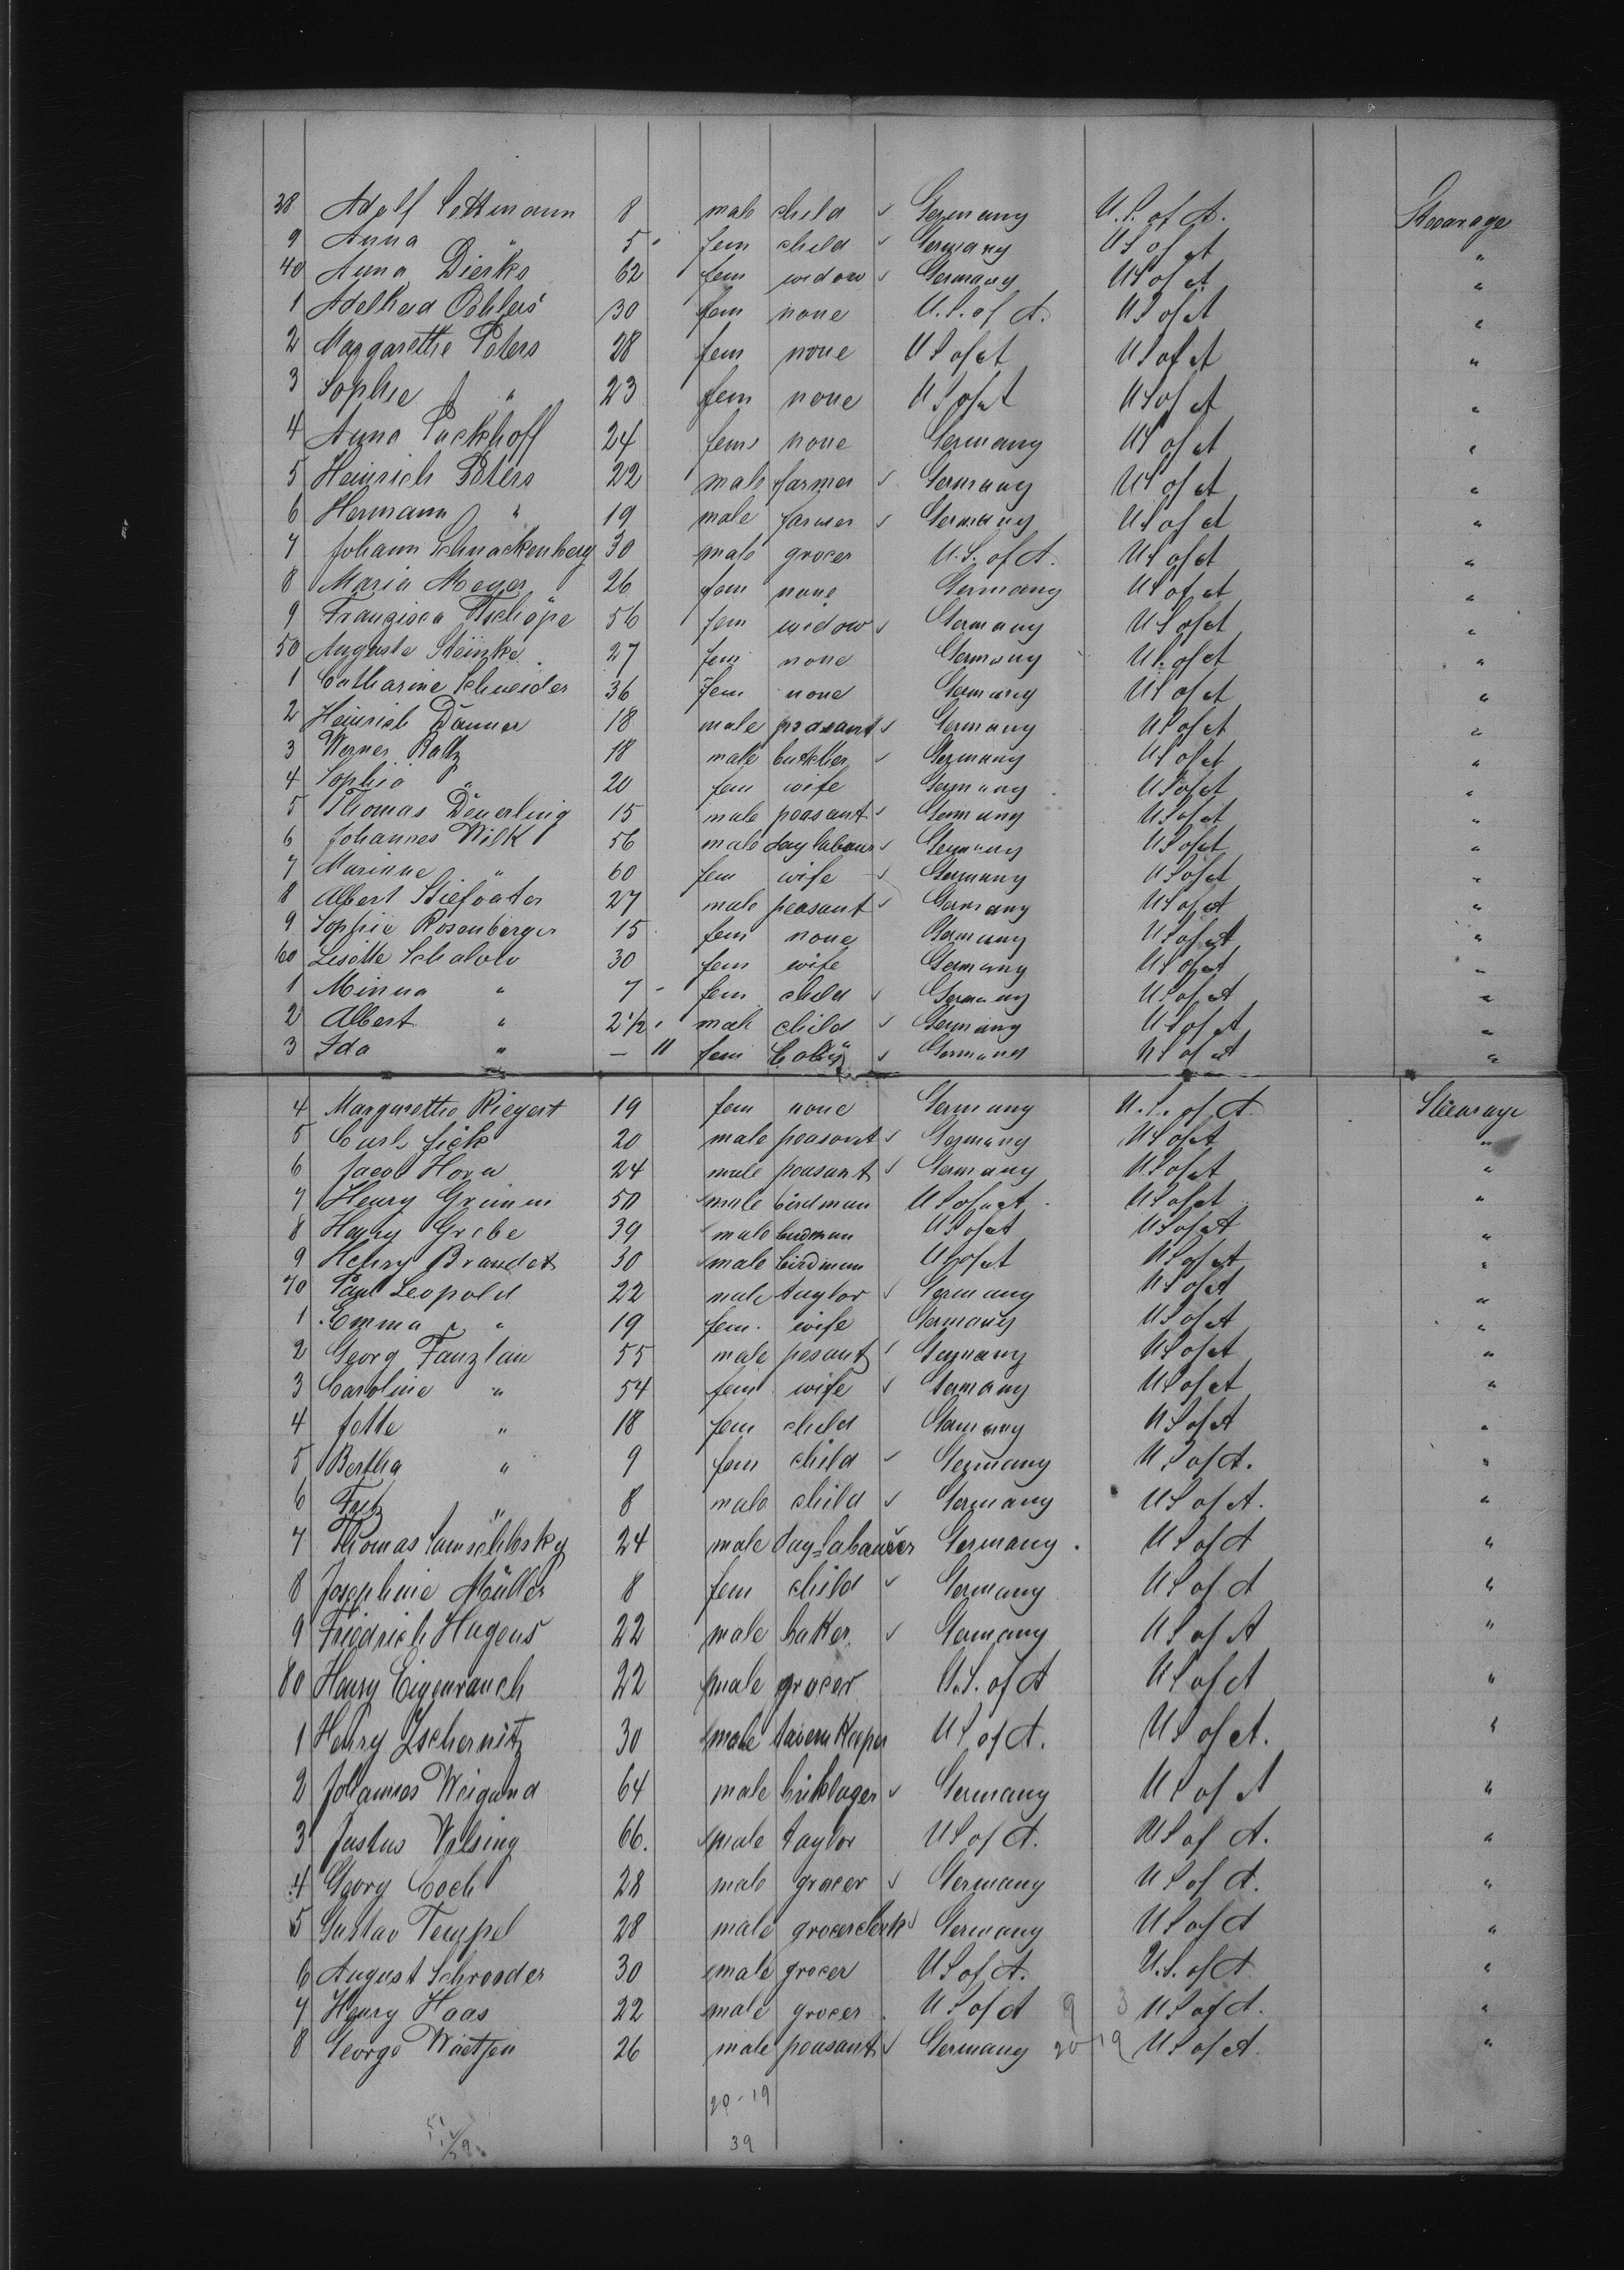 38 Adolf Lottmann 8 male child ✓ Germany U.S. of A. Steerage
9 Anna 5 fem child ✓ Germany U S of A "
40 Anna Dierks 62 fem widow ✓ Germany U S of A "
1 Adelheid Oehlers 30 fem none U.S. of A. U S of A "
2 Margarethe Peters 28 fem none U S of A U S of A "
3 Sophie " 23 fem none U S of A U S of A "
4 Anna Puckhoff 24 fem none Germany U S of A "
5 Heinrich Peters 22 male farmer ✓ Germany U S of A "
6 Hermann " 19 male farmer ✓ Germany U S of A "
7 Johann Schnackenberg 30 male grocer U.S. of A. U S of A "
8 Maria Meyer 26 fem none Germany U S of A "
9 Franzisca 56 fem widow ✓ Germany U S of A "
50 Auguste Steinke 27 fem none Germany U S of A "
1 Catharine Schneider 36 fem none Germany U S of A "
2 Heinrich Dänner 18 male peasant ✓ Germany U S of A "
3 Werner Raltz 18 male butcher ✓ Germany U S of A "
4 Sophia " 20 fem wife Germany U S of A "
5 Thomas Deuerling 15 male peasant ✓ Germany U S of A "
6 Johannes Wilk 56 male day labour ✓ Germany U S of A "
7 Marianne " 60 fem wife ✓ Germany U S of A "
8 Albert Stiefvater 27 male peasant ✓ Germany U S of A "
9 Sophie Rosenberger 15 fem none Germany U S of A "
60 Lisette Schalow 30 fem wife Germany U S of A "
1 Minna " 7 fem child ✓ Germany U S of A "
2 Albert " 2 1/2 male child ✓ Germany U S of A "
3 Ida " — 11 fem Baby ✓ Germany U S of A "
4 Margarethe Riegert 19 fem none Germany U.S. of A. Steerage
5 Carl Fick 20 male peasant ✓ Germany U S of A "
6 Jacob Horn 24 male peasant ✓ Germany U S of A "
7 Henry Grimm 50 male birdman U S of A U S of A "
8 Henry Grebe 39 male birdman U S of A U S of A "
9 Henry Brandet 30 male birdman U S of A U S of A "
70 Paul Leopold 22 male taylor ✓ Germany U S of A "
1 Emma " 19 fem. wife Germany U S of A "
2 Georg Fanzlau 55 male pesant ✓ Germany U S of A "
3 Caroline " 54 fem wife ✓ Germany U S of A "
4 Jette " 18 fem child Germany U S of A "
5 Bertha " 9 fem child ✓ Germany U S of A. "
6 Fritz " 8 male child ✓ Germany U S of A. "
7 Thomas 24 male day=labourer Germany U S of A "
8 Josephine Müller 8 fem child ✓ Germany U S of A "
9 Friedrich Hugens 22 male baker ✓ Germany U S of A "
80 Henry Eigenrauch 22 male grocer U.S. of A U S of A "
1 Henry Zschernitz 30 male tavern Keeper U S of A. U S of A. "
2 Johannes Weigand 64 male briklager ✓ Germany U S of A "
3 Justus Welsing 66. male taylor U S of A. U S of A. "
4 Georg Coch 28 male grocer ✓ Germany U S of A. "
5 Gustav Tempel 28 male grocerclerk ✓ Germany U S of A "
6 August Schroeder 30 male grocer U S of A. U.S. of A "
7 Henry Haas 22 male grocer U S of A 9 3 U S of A. "
8 George Waetjen 26 male peasant ✓ Germany 20 19 U S of A. "
20-19
39